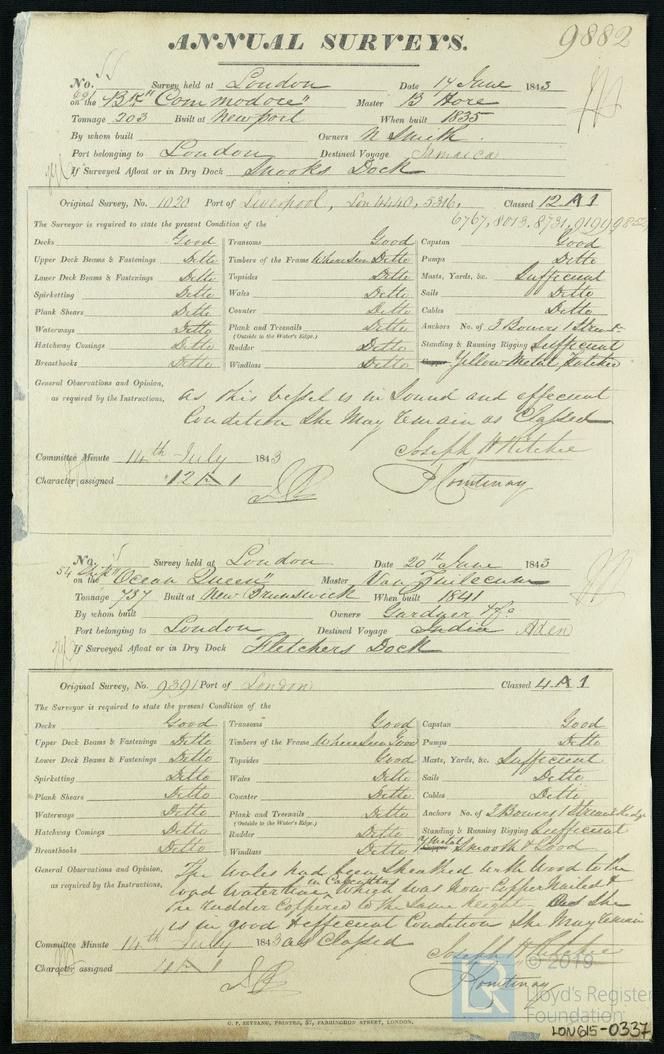 ANNUAL SURVEYS.
9882
No. 51 Survey held at London Date 14 June 1843
on the Bk "Commodore" Master B Hore
Tonnage 203 Built at Newport When built 1835
By whom built Owners N Smith
Port belonging to London Destined Voyage Jamaica
If Surveyed Afloat or in Dry Dock Snooks Dock
Original Survey, No. 1020 Port of Liverpool, Lon 4440, 5316, Classed 12 A 1
6767, 8013, 8731, 9199,
The Surveyor is required to state the present Condition of the
Decks Good Transoms Good Capstan Good
Upper Deck Beams & Fastenings Ditto Timbers of the Frame Where Seen Ditto Pumps Ditto
Lower Deck Beams & Fastenings Ditto Topsides Ditto Masts, Yards, &c. Sufficient
Spirketting Ditto Wales Ditto Sails Ditto
Plank Shears Ditto Counter Ditto Cables Ditto
Waterways Ditto Plank and Treenails Ditto Anchors No. of 3 Bowers 1 Stream
(Outside to the Water's Edge.)
Hatchway Comings Ditto Rudder Ditto Standing & Running Rigging Sufficient
Breasthooks Ditto Windlass Ditto Copper Yellow Metal
General Observations and Opinion, as this vessel is in Sound and effecient
as required by the Instructions, Condition She May Remain as Classed
Joseph H Ritchie
Committee Minute 14th July 1843
Character assigned 12 A 1
P Courtenay
No. Survey held at London Date 20th June 1843
54 on the Ship "Ocean Queen" Master
Tonnage 737 Built at New Brunswick When built 1841
By whom built Owners Gardner & Co
Port belonging to London Destined Voyage India Aden
If Surveyed Afloat or in Dry Dock Fletchers Dock
Original Survey, No. 9391 Port of London Classed 4 A 1
The Surveyor is required to state the present Condition of the
Decks Good Transoms Good Capstan Good
Upper Deck Beams & Fastenings Ditto Timbers of the Frame Where Seen Good Pumps Ditto
Lower Deck Beams & Fastenings Ditto Topsides Good Masts, Yards, &c. Sufficient
Spirketting Ditto Wales Ditto Sails Ditto
Plank Shears Ditto Counter Ditto Cables Ditto
Waterways Ditto Plank and Treenails Ditto Anchors No. of 3 Bowers 1 Stream & Kedge
(Outside to the Water's Edge.)
Hatchway Comings Ditto Rudder Ditto Standing & Running Rigging Sufficient
Breasthooks Ditto Windlass Ditto Copper Y Metal Smooth & Good
General Observations and Opinion, The Wales had been Sheathed with Wood to the
as required by the Instructions, load Waterline in Calcutta which was now Copper Nailed &
the Rudder Coppered to the Same height. And She
is in good & effecient Condition She May remain
Committee Minute 14th July 1843 as Classed
Joseph H Ritchie
Character assigned 4 A 1
P Courtenay
© 2019
LR
Lloyd's Register
Foundation
C. F. SEYFANG, PRINTER, 57, FARRINGDON STREET, LONDON.
LON615-0337